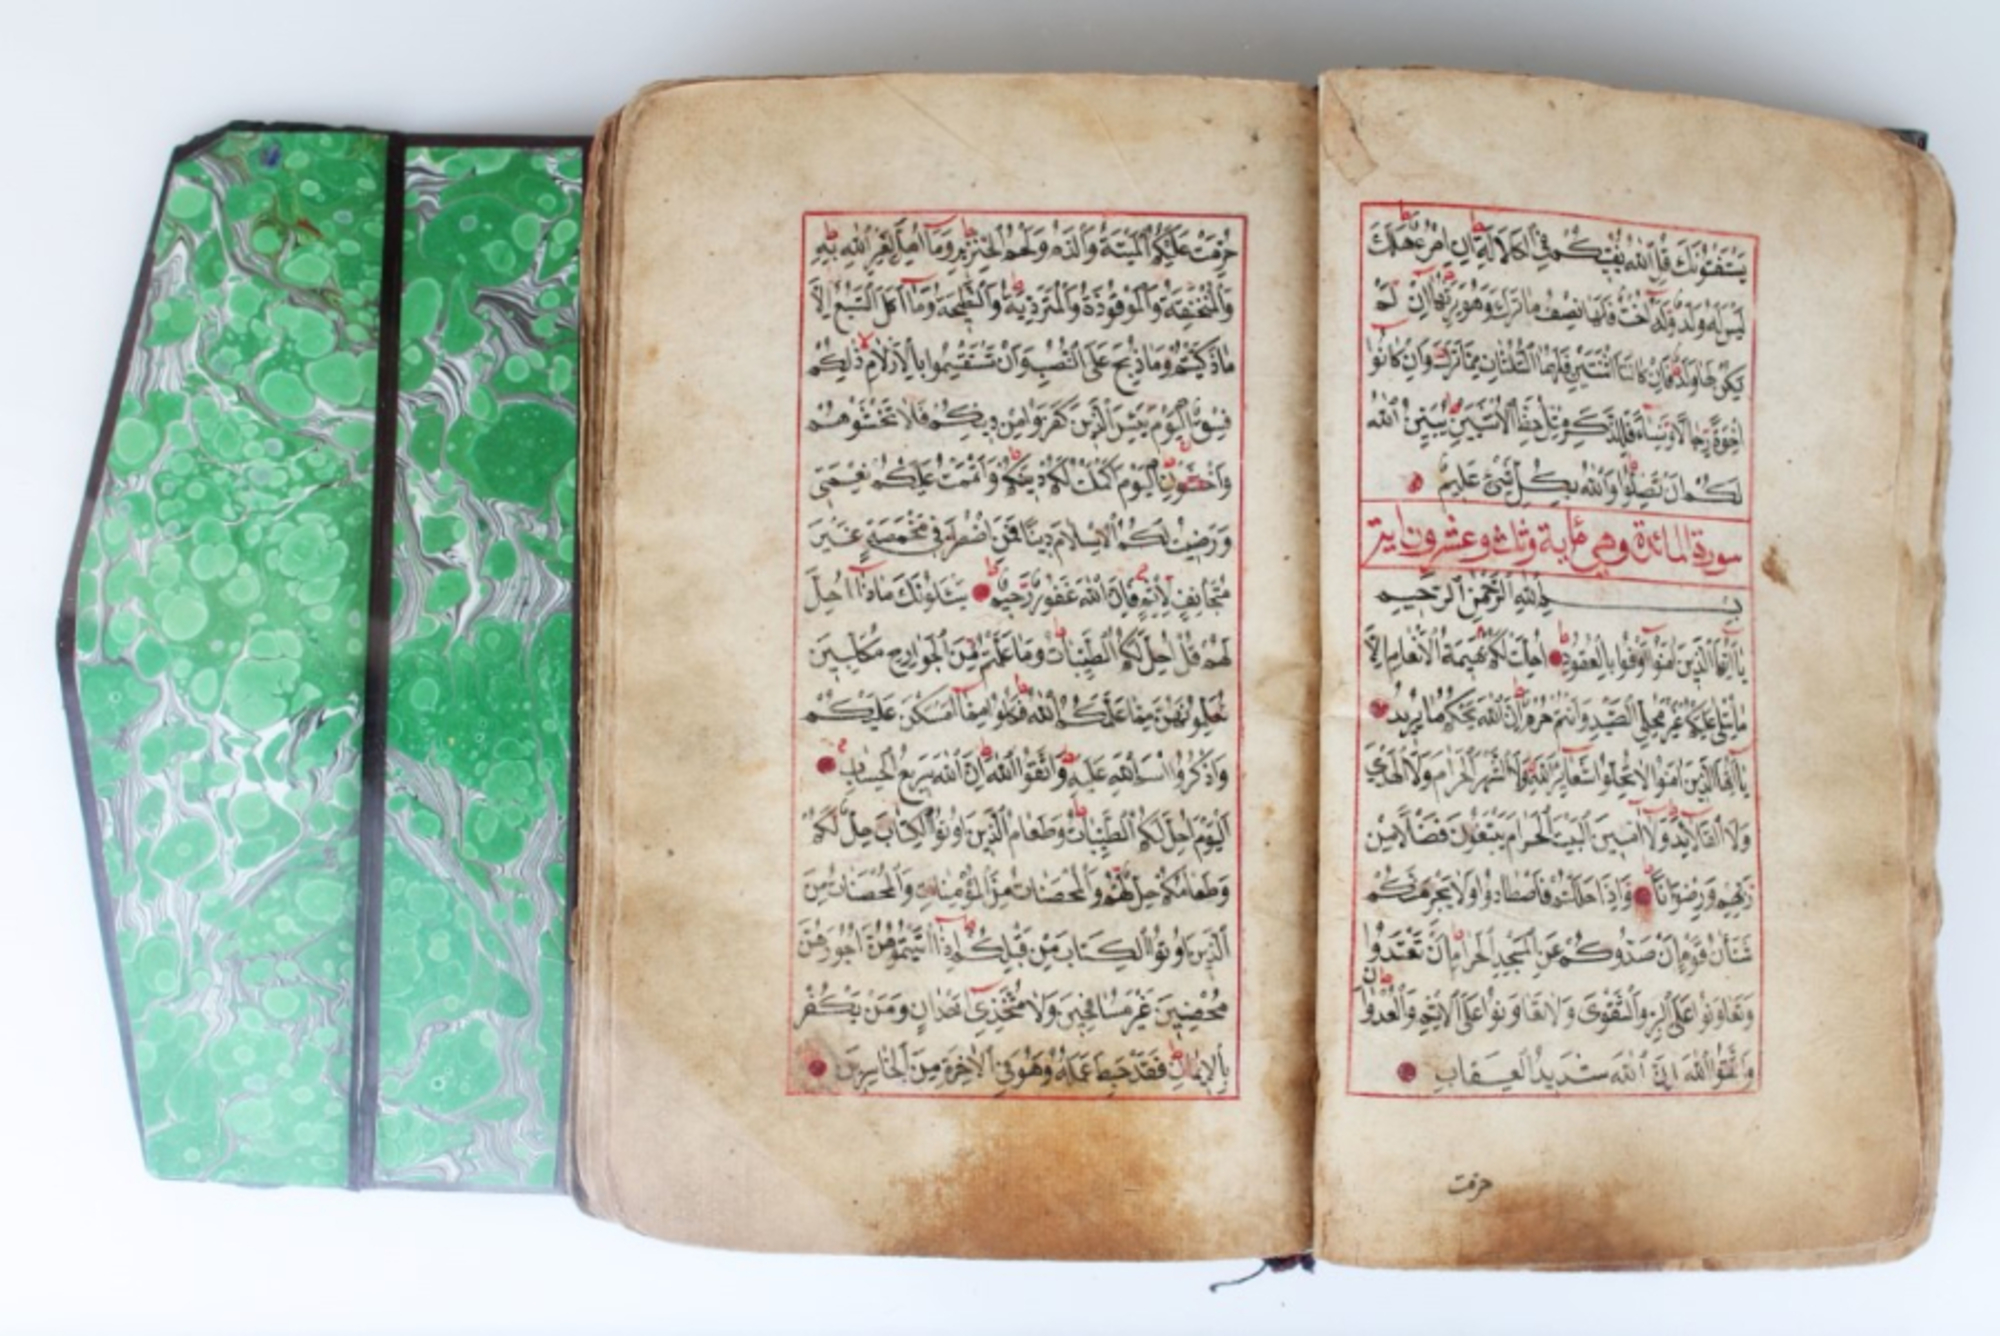 يستفتونك قل الله يفتيكم في الكلالة ان امرؤ هلك
ليس له ولد وله اخت فلها نصف ما ترك وهو يرثها ان لم
يكن لها ولد فان كانتا اثنتين فلهما الثلثان مما ترك وان كانوا
اخوة رجالا ونساء فللذكر مثل حظ الانثيين يبين الله
لكم ان تضلوا والله بكل شيئ عليم
سورة المائدة وهي مأية وثلث وعشرون اية
بسم الله الرحمن الرحيم
يا ايها الذين امنوا اوفوا بالعقود احلت لكم بهيمة الانعام الا
ما يتلى عليكم غير محلي الصيد وانتم حرم ان الله يحكم ما يريد
يا ايها الذين امنوا لا تحلوا شعائر الله ولا الشهر الحرام ولا الهدي
ولا القلائد ولا امين البيت الحرام يبتغون فضلا من
ربهم ورضوانا واذا حللتم فاصطادوا ولا يجرمنكم
شنأن قوم ان صدوكم عن المسجد الحرام ان تعتدوا
وتعاونوا على البر والتقوى ولا تعاونوا على الاثم والعدوان
واتقوا الله ان الله شديد العقاب
حرمت
حرمت عليكم الميتة والدم ولحم الخنزير وما اهل لغير الله به
والمنخنقة والموقوذة والمتردية والنطيحة وما اكل السبع الا
ما ذكيتم وما ذبح على النصب وان تستقسموا بالازلام ذلكم
فسق اليوم يئس الذين كفروا من دينكم فلا تخشوهم
واخشون اليوم اكملت لكم دينكم واتممت عليكم نعمتي
ورضيت لكم الاسلام دينا فمن اضطر في مخمصة غير
متجانف لاثم فان الله غفور رحيم يسئلونك ماذا احل
لهم قل احل لكم الطيبات وما علمتم من الجوارح مكلبين
تعلمونهن مما علمكم الله فكلوا مما امسكن عليكم
واذكروا اسم الله عليه واتقوا الله ان الله سريع الحساب
اليوم احل لكم الطيبات وطعام الذين اوتوا الكتاب حل لكم
وطعامكم حل لهم والمحصنات من المؤمنات والمحصنات من
الذين اوتوا الكتاب من قبلكم اذا اتيتموهن اجورهن
محصنين غير مسافحين ولا متخذي اخدان ومن يكفر
بالايمان فقد حبط عمله وهو في الاخرة من الخاسرين